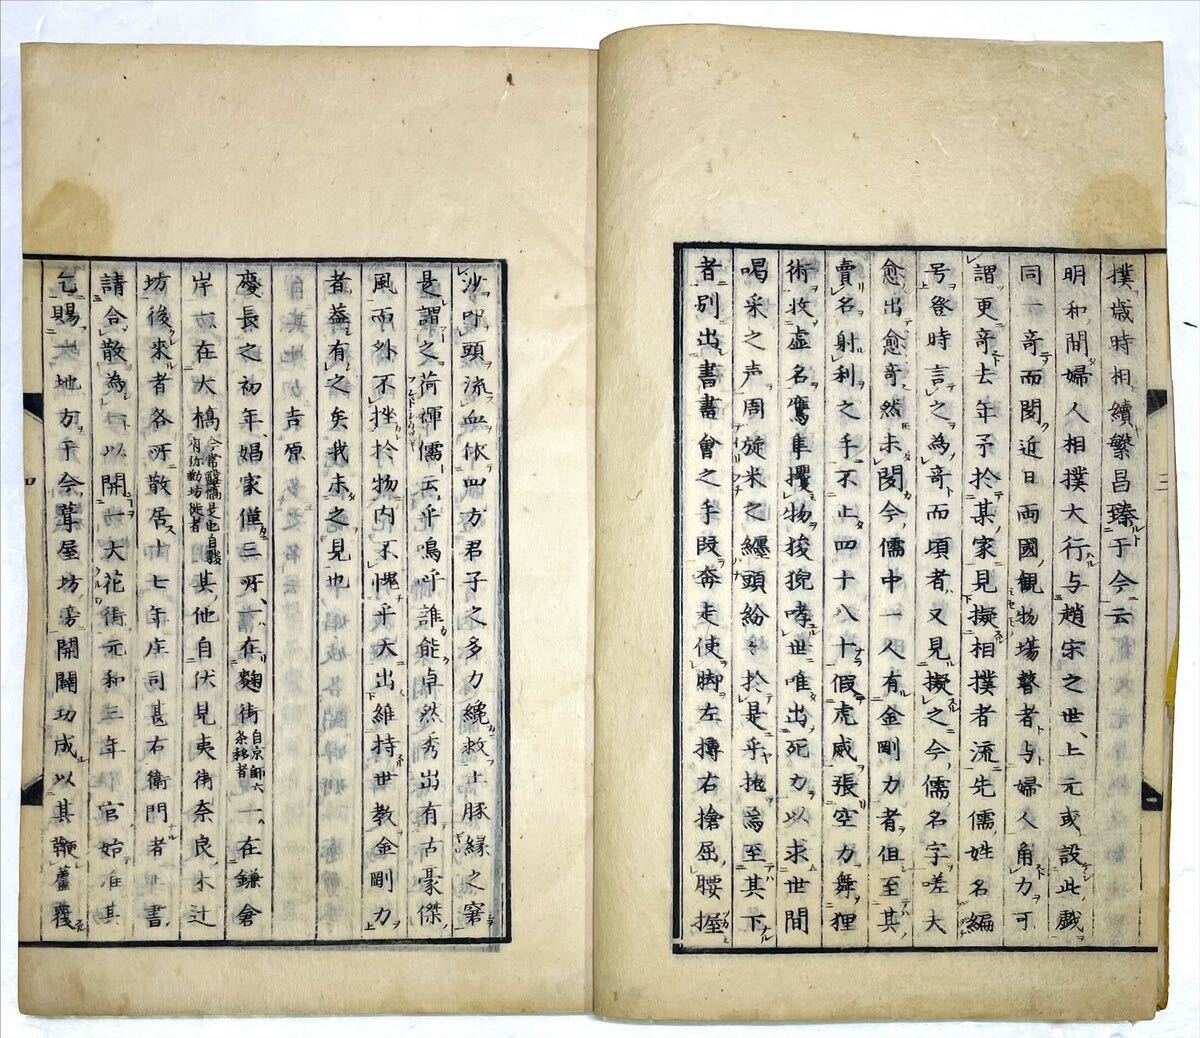 撲歳時相續繁昌臻于今云
明和間婦人相撲大行与趙宋之世上元或設此戯
同一奇而聞近日両國觀物場瞽者与婦人角力可
謂更奇去年予於某家見擬相撲者流先儒姓名編
号登時言之為奇而頃者又見擬之今儒名字嗟夫
愈出愈奇然未聞今儒中一人有金剛力者但至其
賣名射利之手不止四十八十假虎威張空力舞狸
術收虚名鷹隼攫物狻猊哮世唯出死力以求世間
喝采之声周旋米之纏頭紛々於是乎抛焉至其下
者別出書畫會之手段奔走使脚左摶右搶屈腰握
三
沙叩頭流血依四方君子之多力纔救上豚縁之窘
是謂之荷褌儒云乎嗚呼誰能卓然秀出有古豪傑
風而外不挫於物内不愧乎天出維持世教金剛力
者蓋有之矣我未之見也
吉原
慶長之初年娼家僅三所一在麹街自京師六条移者一在鎌倉
岸一在大橋今常盤橋是也自駿府弥勒坊徙者其他自伏見夷街奈良木辻
坊後來者各所散居十七年庄司甚右衛門者上書
請合散為一以開一大花街元和三年官始准其
乞賜大地方千余葺屋坊旁開闢功成以其鞭蘆葭
四